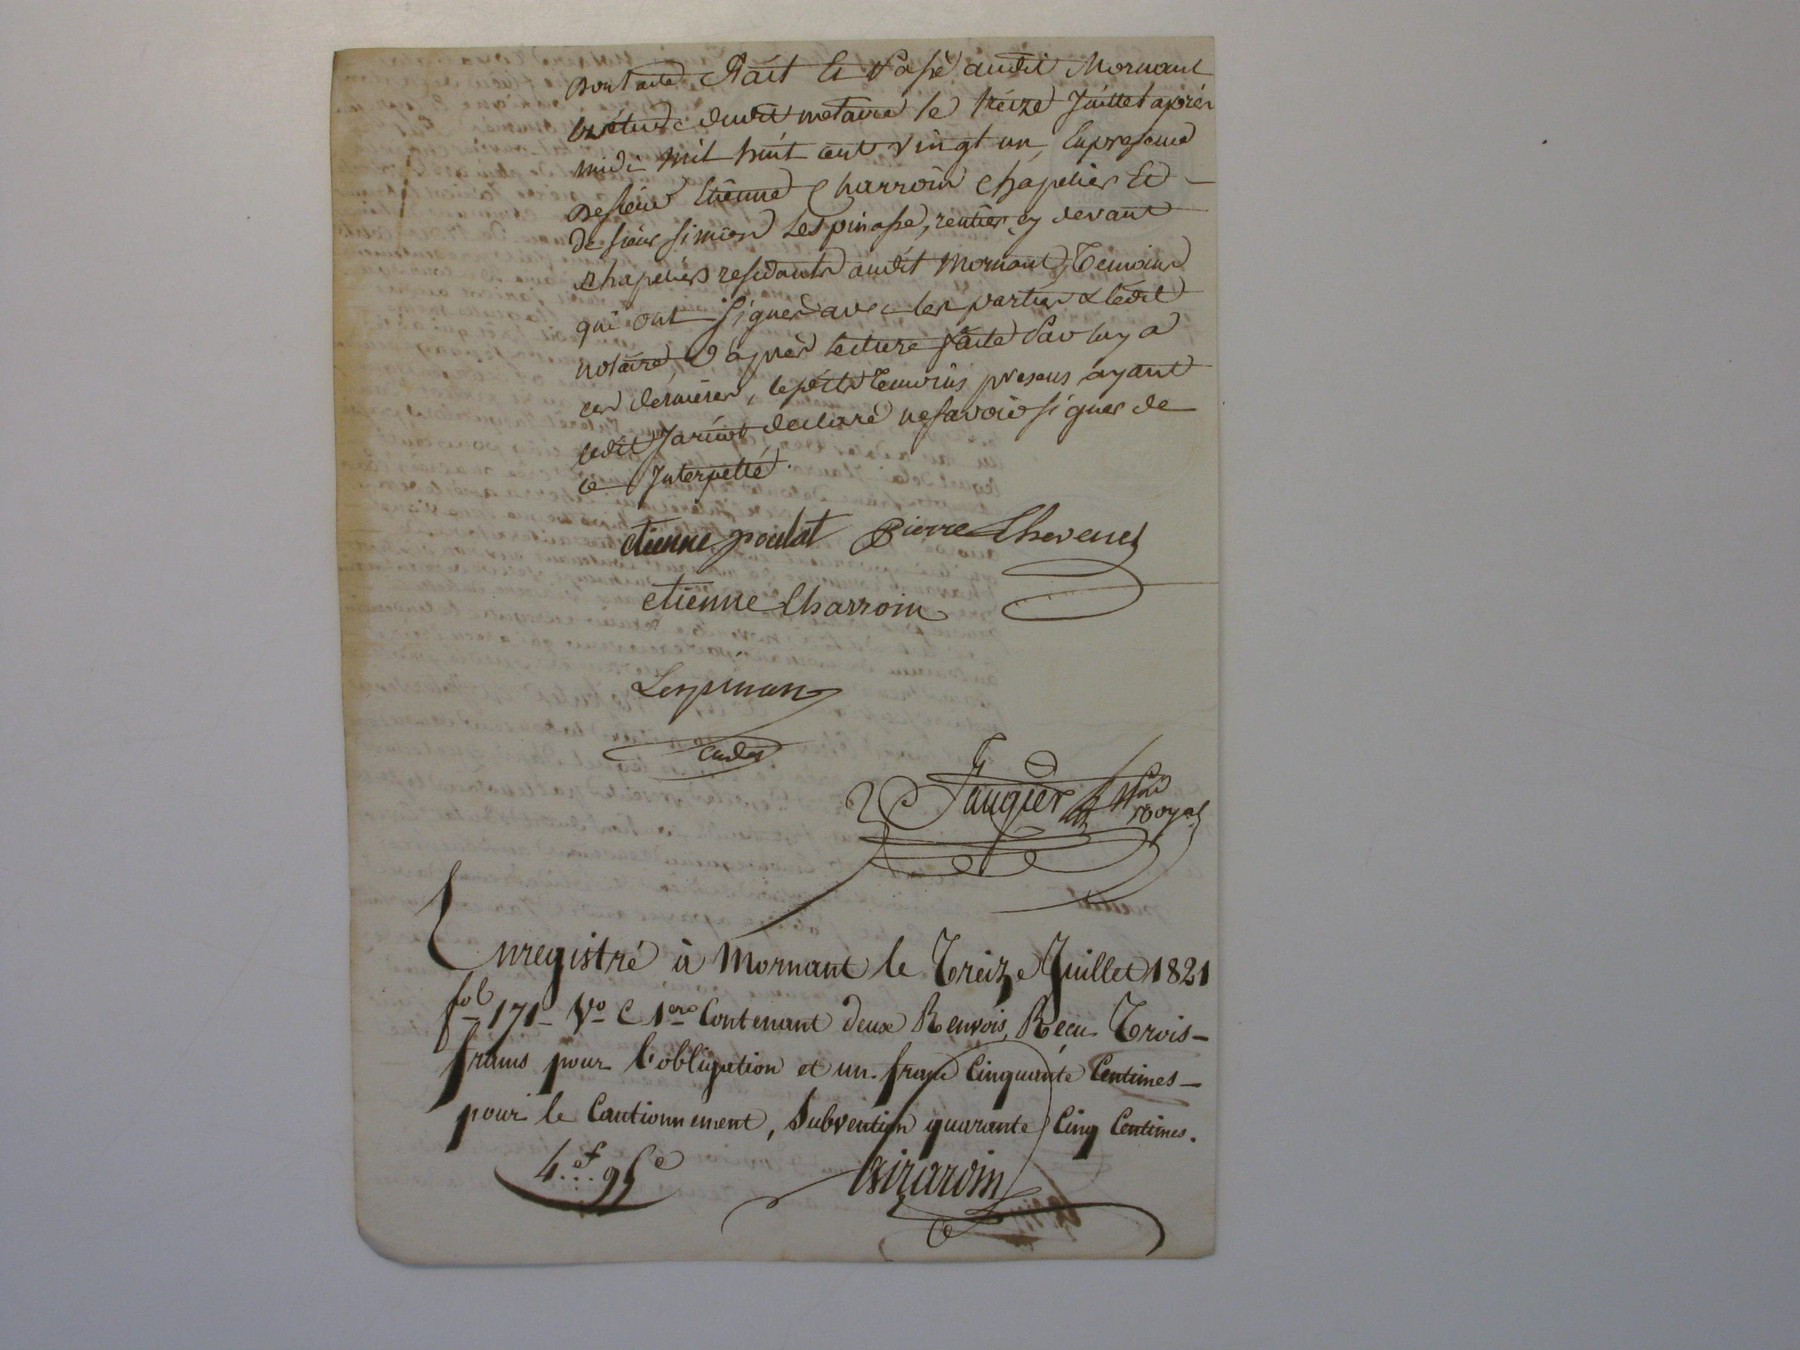 dont acte fait et passé audit Mornant
en étude dudit notaire le treize Juillet après
midi mil huit cent vingt un, En presence
de sieur Etienne Charroin chapelier Et
de sieur Simeon Lespinasse, rentier cy devant
chapeliers residants audit Mornant, Temoins
qui ont signés avec les parties & ledit
notaire, d'après lecture faite Par luy a
ces dernieres, lesdits temoins presens, ayant
ledit Jaricot declaré ne savoir signer de
ce Interpellé.
etienne poulat Pierre Thevenet
etienne Charroin
Lespinasse
Faugier Nre royal
Enregistré à Mornant le Treize Juillet 1821
fol 171 Vo C 1ere Contenant deux Renvois, Recu Trois
francs pour l'obligation et un franc Cinquante Centimes
pour le Cautionnement, Subvention quarante Cinq Centimes.
4f 95c Girardin